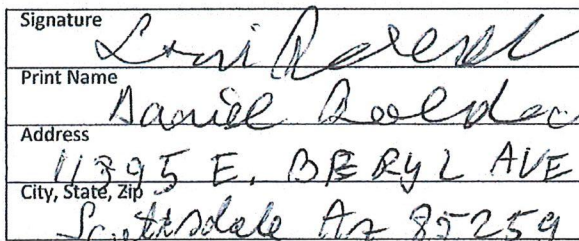 Signature
Print Name
Daniel
Address
11395 E. BERYL AVE
City, State, Zip
Scottsdale Az 85259